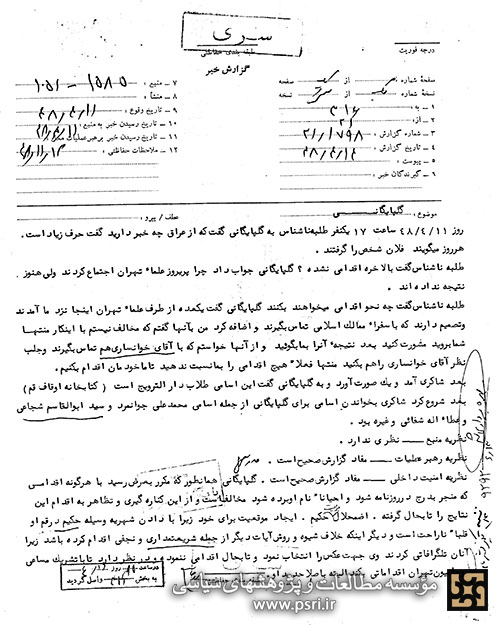 سری
درجه فوریت
طبقه بندی حفاظتی
گزارش خبر
صفحه شماره: یک از یک صفحه
نسخه شماره: یک از نسخه
۱ ـ به ۳۱۶
۲ ـ از: ۲۱
۳ ـ شماره گزارش ۲۱/۱۷۹۸
۴ ـ تاریخ گزارش ۴۸/۴/۱۴
۵ ـ پیوست
۶ ـ گیرندگان خبر
۷ ـ منبع: ۱۵۸۵
۸ ـ منشاء
۹ ـ تاریخ وقوع ۴۸/۴/۱۱
۱۰ ـ تاریخ رسیدن خبر به منبع ۴۸/۴/۱۱
۱۱ ـ تاریخ رسیدن خبر برهبر عملیات
۱۲ ـ ملاحظات حفاظتی
موضوع: گلپایگانی
عطف / پیرو:
روز ۴۸/۴/۱۱ ساعت ۱۷ یکنفر طلبه ناشناس به گلپایگانی گفت که از عراق چه خبر دارید گفت حرف زیاد است.
هر روز میگویند فلان شخص را گرفتند.
طلبه ناشناس گفت بالاخره اقدامی نشده ؟ گلپایگانی جواب داد چرا پریروز علماء تهران اجتماع کردند ولی هنوز
نتیجه نداده اند.
طلبه ناشناس گفت چه نحو اقدامی میخواهند بکنند گلپایگانی گفت یکعده از طرف علماء تهران اینجا نزد ما آمدند
و تصمیم دارند که با سفراء ممالک اسلامی تماس بگیرند و اضافه کرد من بآنها گفتم که مخالف نیستم با اینکار منتها
شما بروید مشورت کنید بعد نتیجه آنرا بما بگوئید و از آنها خواستم که با آقای خوانساری هم تماس بگیرند و جلب
نظر آقای خوانساری را هم بکنید منتها فعلا هیچ اقدامی را بما نسبت ندهید تا ما خودمان اقدام بکنیم.
بعد شاکری آمد و یک صورت آورد و به گلپایگانی گفت این اسامی طلاب دار الترویج است ( کتابخانه اوقاف قم )
بعد شروع کرد شاکری بخواندن اسامی برای گلپایگانی از جمله اسامی محمد علی جوانمرد و سید ابوالقاسم شجاعی
و عطاء اله شفائی و غیره بود.
نظریه منبع ـــ نظری ندارد.
نظریه رهبر عملیات ـــ مفاد گزارش صحیح است.
نظریه امنیت داخلی ـ مفاد گزارش صحیح است. گلپایگانی همانطور که مکرر بعرض رسید با هرگونه اقدامی
که منجر بدرج در روزنامه شود و احیانا نام او برده شود مخالف است و از این کناره گیری و تظاهر به اقدام این
نتایج را تابحال گرفته. اضمحلال حکیم. ایجاد موقعیت برای خود زیرا با دادن شهریه وسیله حکیم در قم او
قلبا ناراحت است و دیگر اینکه خلاف شیوه و روش آیات دیگر از جمله شریعتمداری و نجفی اقدام کرده باشد زیرا
آنان تلگرافاتی کردند وی جهت عکس را انتخاب نمود و تا بحال اقدامی ننمود و در نظر دارد تا با تشریک مساعی
تهران اقداماتی بکند
به بخش ۳۱۶ واصل گردید
مؤسسه مطالعات و پژوهشهای سیاسی
www.psri.ir